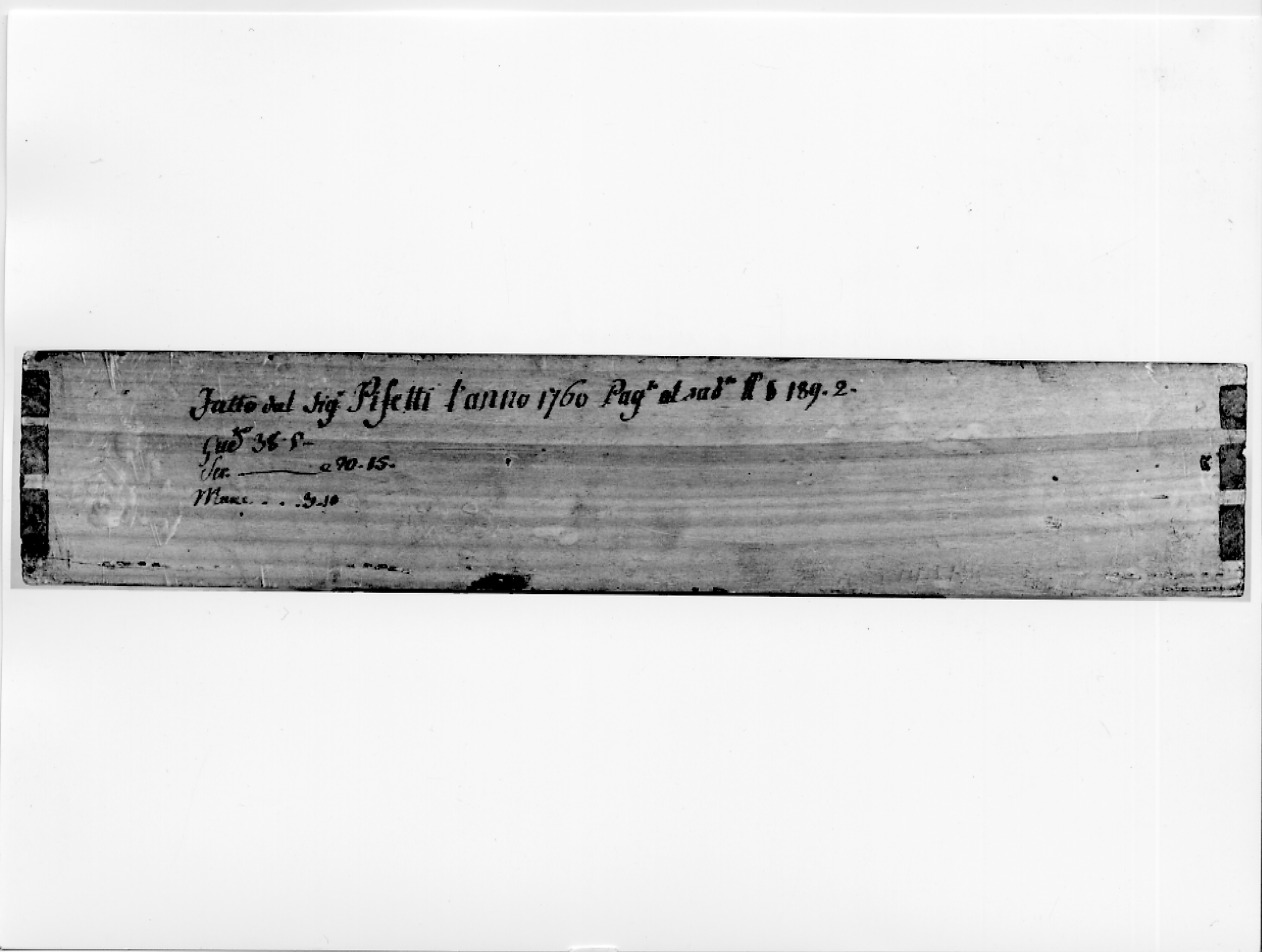 Fatto dal Sigr Pifetti l'anno 1760 Pagto al sudto 189-2-
38-5-
Ser. a 90-15-
Manc. . . 9-10